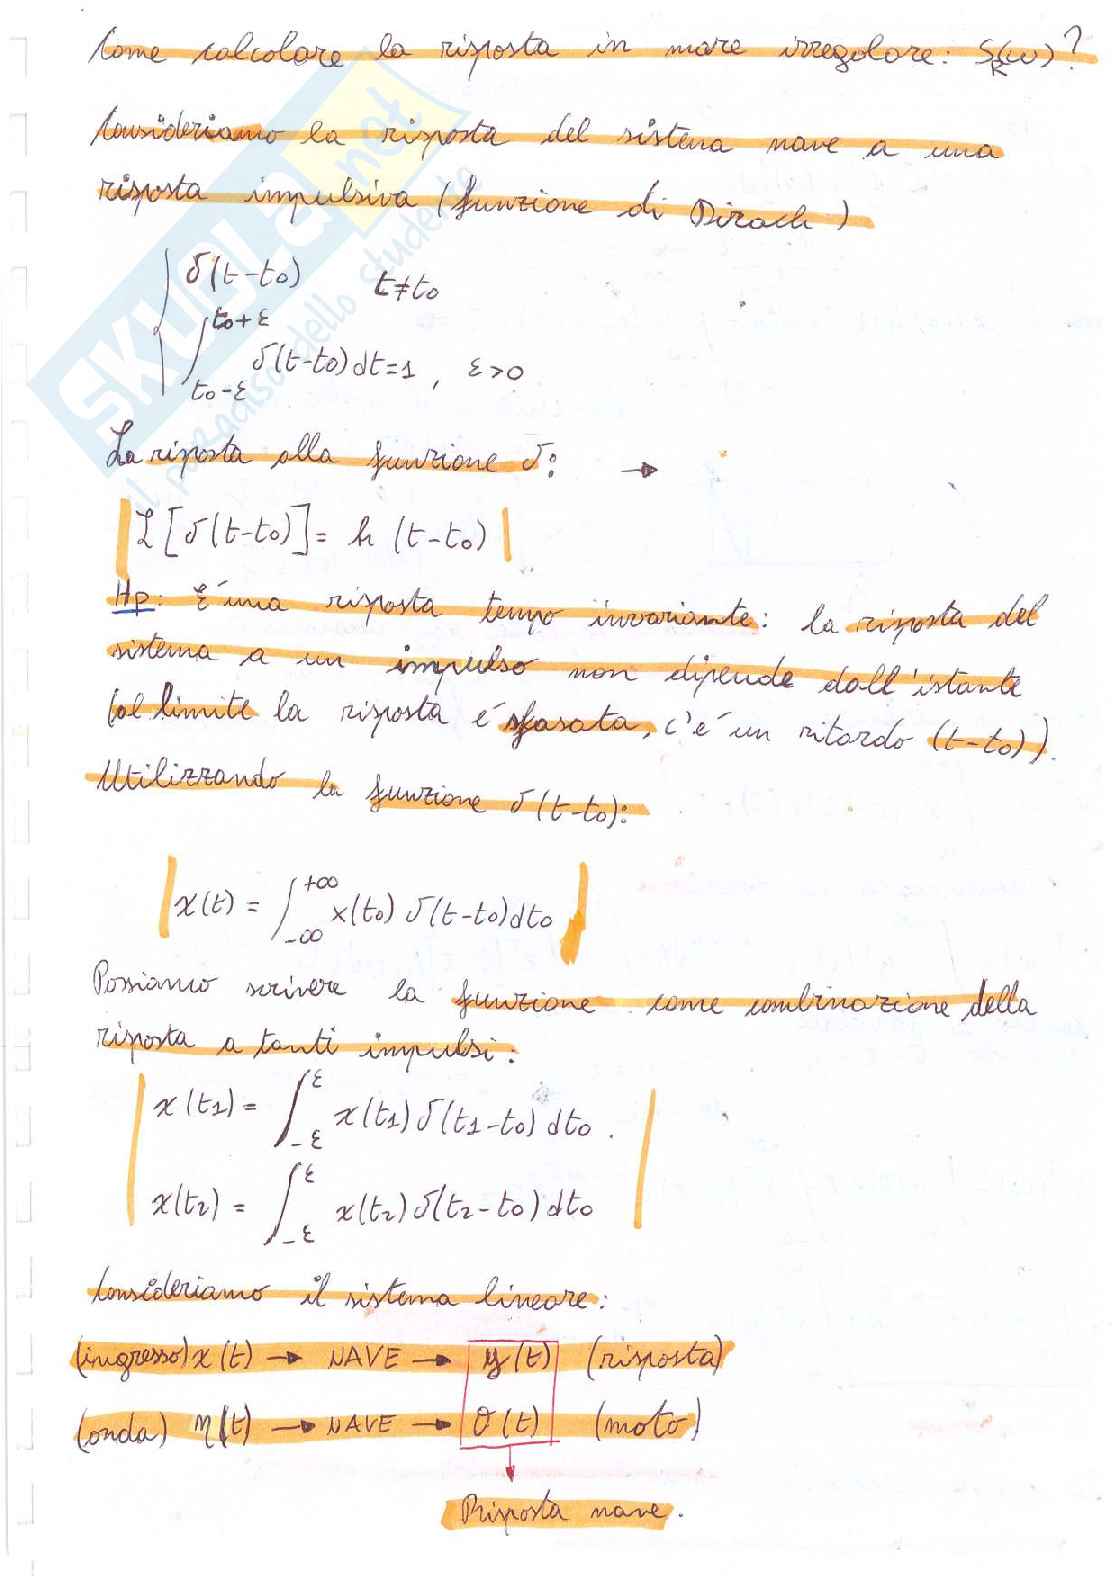 Come calcolare la risposta in mare irregolare: S_R(ω)?
Consideriamo la risposta del sistema nave a una
risposta impulsiva (funzione di Dirach)
δ(t-t0) t≠t0
∫_{t0-ε}^{t0+ε} δ(t-t0)dt=1, ε>0
La risposta alla funzione δ: →
L[δ(t-t0)] = h (t-t0)
Hp: È una risposta tempo invariante: la risposta del
sistema a un impulso non dipende dall'istante
(al limite la risposta é sfasata, c'é un ritardo (t-t0)).
Utilizzando la funzione δ(t-t0):
x(t) = ∫_{-∞}^{+∞} x(t0) δ(t-t0)dt0
Possiamo scrivere la funzione come combinazione della
risposta a tanti impulsi:
x(t1) = ∫_{-ε}^{ε} x(t1) δ(t1-t0) dt0.
x(t2) = ∫_{-ε}^{ε} x(t2) δ(t2-t0) dt0
Consideriamo il sistema lineare:
(ingresso) x(t) → NAVE → y(t) (risposta)
(onda) η(t) → NAVE → θ(t) (moto)
Risposta nave.
SKUOLA.not
il paradiso dello studente